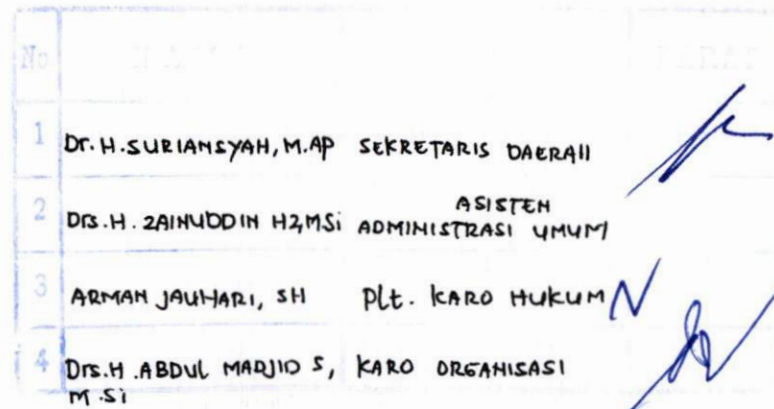 No
1 Dr. H. SURIANSYAH, M.AP SEKRETARIS DAERAH
2 Drs. H. ZAINUDDIN HZ, MSi ASISTEN
ADMINISTRASI UMUM
3 ARMAN JAUHARI, SH Plt. KARO HUKUM
4 Drs. H. ABDUL MADJID S, KARO ORGANISASI
M.Si